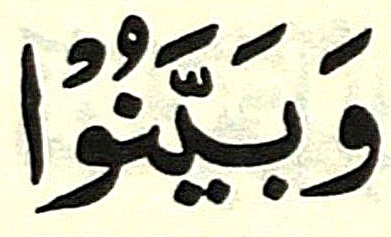 وَبَيَّنُوْا